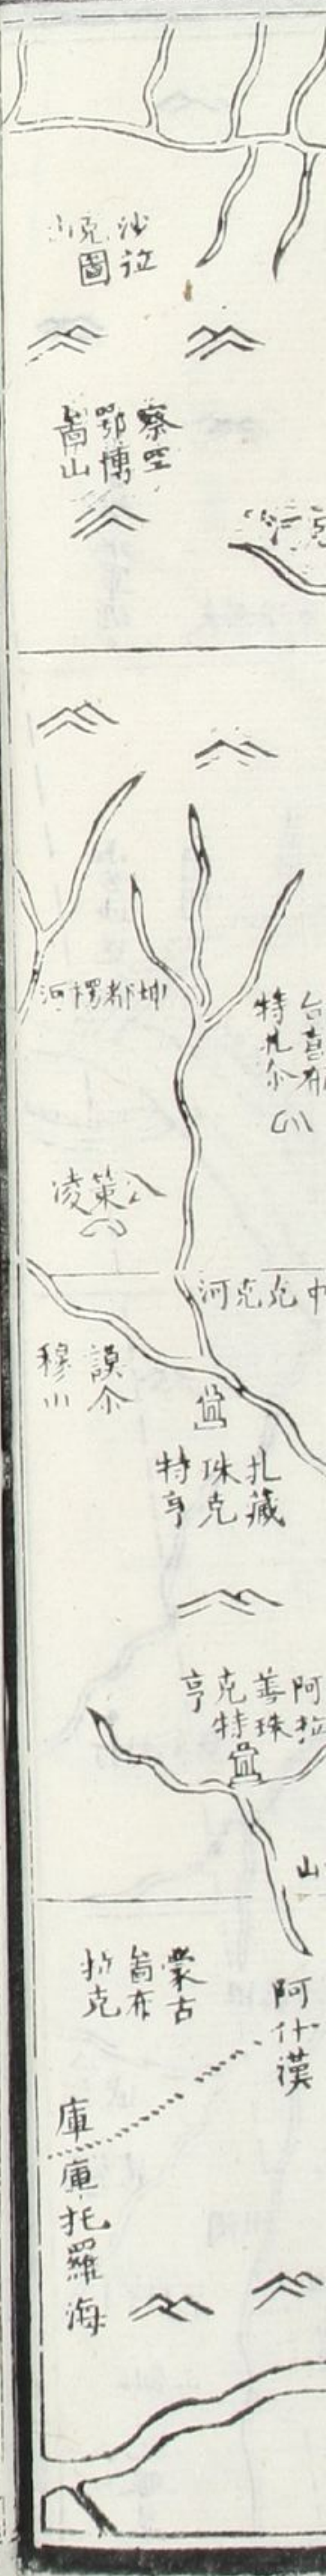 沙拉
克圖
山
察
鄂博
山
坤都楞河
台吉布
特札尔
公策凌
中克克河
謨尔
穆
扎藏
珠克
特亨
阿拉
善珠
克特
亨
山
蒙古
布
克
阿什漢
庫庫托羅海